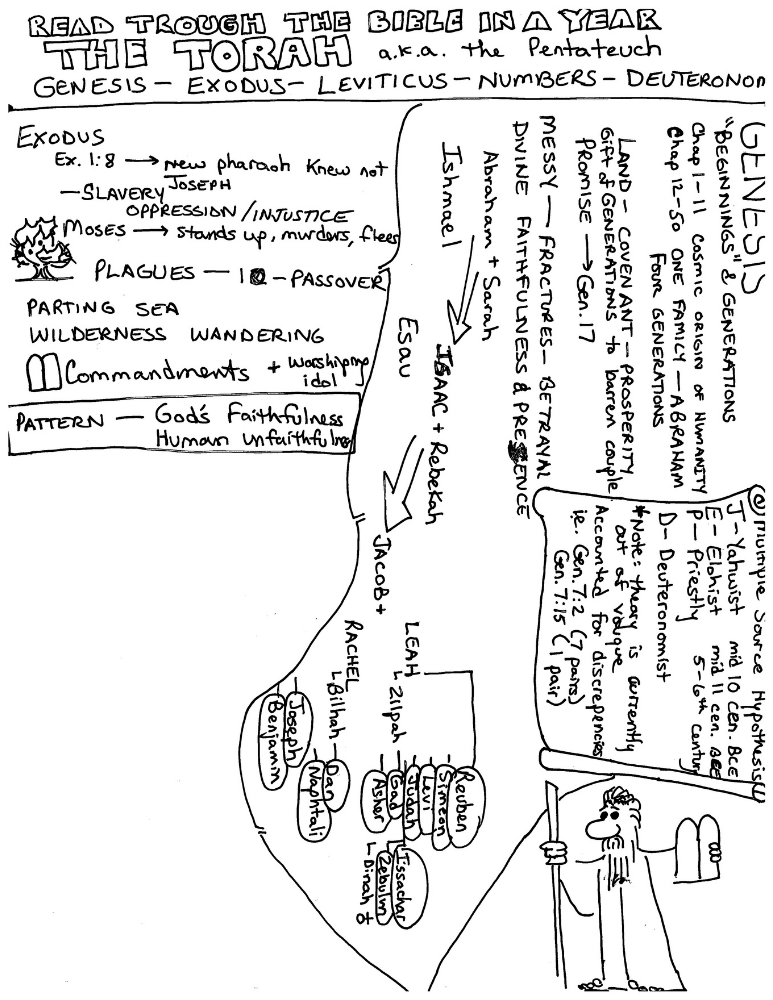 READ TROUGH THE BIBLE IN A YEAR
THE TORAH a.k.a. the Pentateuch
GENESIS — EXODUS — LEVITICUS — NUMBERS — DEUTERONOM
EXODUS
Ex. 1:8 → New pharaoh knew not
JOSEPH
— SLAVERY
OPPRESSION/INJUSTICE
MOSES → stands up, murders, flees
PLAGUES — 10 — PASSOVER
PARTING SEA
WILDERNESS WANDERING
Commandments + worshiping
idol
PATTERN — God's Faithfulness
Human Unfaithfulnes
GENESIS
"BEGINNINGS" & GENERATIONS
Chap 1-11 Cosmic ORIGIN OF HUMANITY
Chap 12-50 ONE FAMILY — ABRAHAM
FOUR GENERATIONS
LAND — COVENANT — PROSPERITY
Gift of GENERATIONS to barren couple
PROMISE → Gen. 17
MESSY — FRACTURES — BETRAYAL
DIVINE FAITHFULNESS & PRESENCE
Abraham + Sarah
Ishmael
ISAAC + Rebekah
Esau
JACOB +
LEAH
Zilpah
RACHEL
Bilhah
Reuben
Simeon
Levi
Judah
Issachar
Zebulun
Dinah
Gad
Asher
Dan
Naphtali
Joseph
Benjamin
Multiple Source Hypothesis
J - Yahwist mid 10 cen. BCE
E - Elohist mid 11 cen. BCE
P - Priestly 5-6th century
D - Deuteronomist
*Note: theory is currently
out of vougue
Accounted for discrepencies
ie. Gen. 7:2 (7 pairs)
Gen. 7:15 (1 pair)